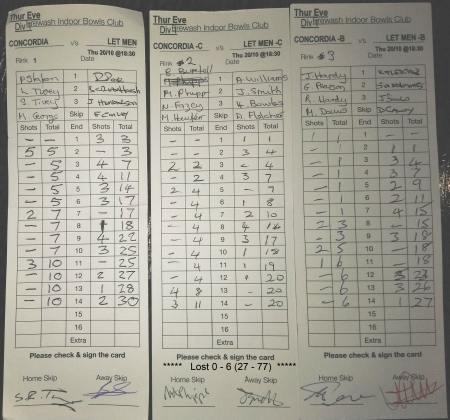 Thur Eve
Div Erewash Indoor Bowls Club
CONCORDIA v/s LET MEN
Thu 20/10 @18:30
Rink 1 Date
1
L Tivey 2
S. Tivey 3
M. George Skip
Shots Total End Shots Total
- - 1 3 3
5 5 2 - 3
- 5 3 4 7
- 5 4 4 11
- 5 5 3 14
- 5 6 3 17
2 7 7 - 17
- 7 8 1 18
- 7 9 4 22
- 7 10 3 25
3 10 11 - 25
- 10 12 2 27
- 10 13 1 28
- 10 14 2 30
15
16
Extra
Please check & sign the card
Home Skip Away Skip
Thur Eve
Div Erewash Indoor Bowls Club
CONCORDIA -C v/s LET MEN -C
Thu 20/10 @18:30
Rink #2 Date
1 A. Williams
M. Phipp 2 J. Smith
3 K. Bowles
Skip A. Fletcher
Shots Total End Shots Total
- - 1 1 1
- - 2 3 4
2 2 3 - 4
- 2 4 3 7
2 4 5 - 7
- 4 6 1 8
- 4 7 2 10
- 4 8 4 14
- 4 9 3 17
- 4 10 1 18
- 4 11 1 19
- 4 12 1 20
4 8 13 - 20
3 11 14 - 20
15
16
Extra
Please check & sign the card
Home Skip Away Skip
Thur Eve
Div Erewash Indoor Bowls Club
CONCORDIA -B v/s LET MEN -B
Thu 20/10 @18:30
Rink #3 Date
J. Hardy 1
2
R. Hardy 3
M. Davis Skip
Shots Total End Shots Total
1 1 1 -
- 1 2 1 1
- 1 3 3 4
- 1 4 3 7
- 1 5 2 9
- 1 6 2 11
- 1 7 4 15
2 3 8 - 15
- 3 9 3 18
2 5 10 - 18
1 6 11 - 18
- 6 12 5 23
- 6 13 3 26
- 6 14 1 27
15
16
Extra
Please check & sign the card
Home Skip Away Skip
***** Lost 0 - 6 (27 - 77) *****